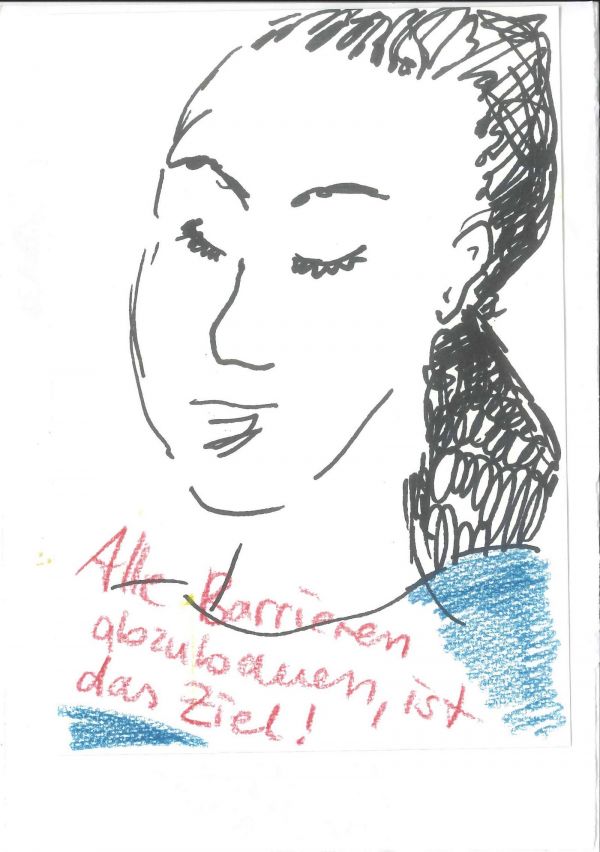 Alle Barrieren
abzubauen, ist
das Ziel!